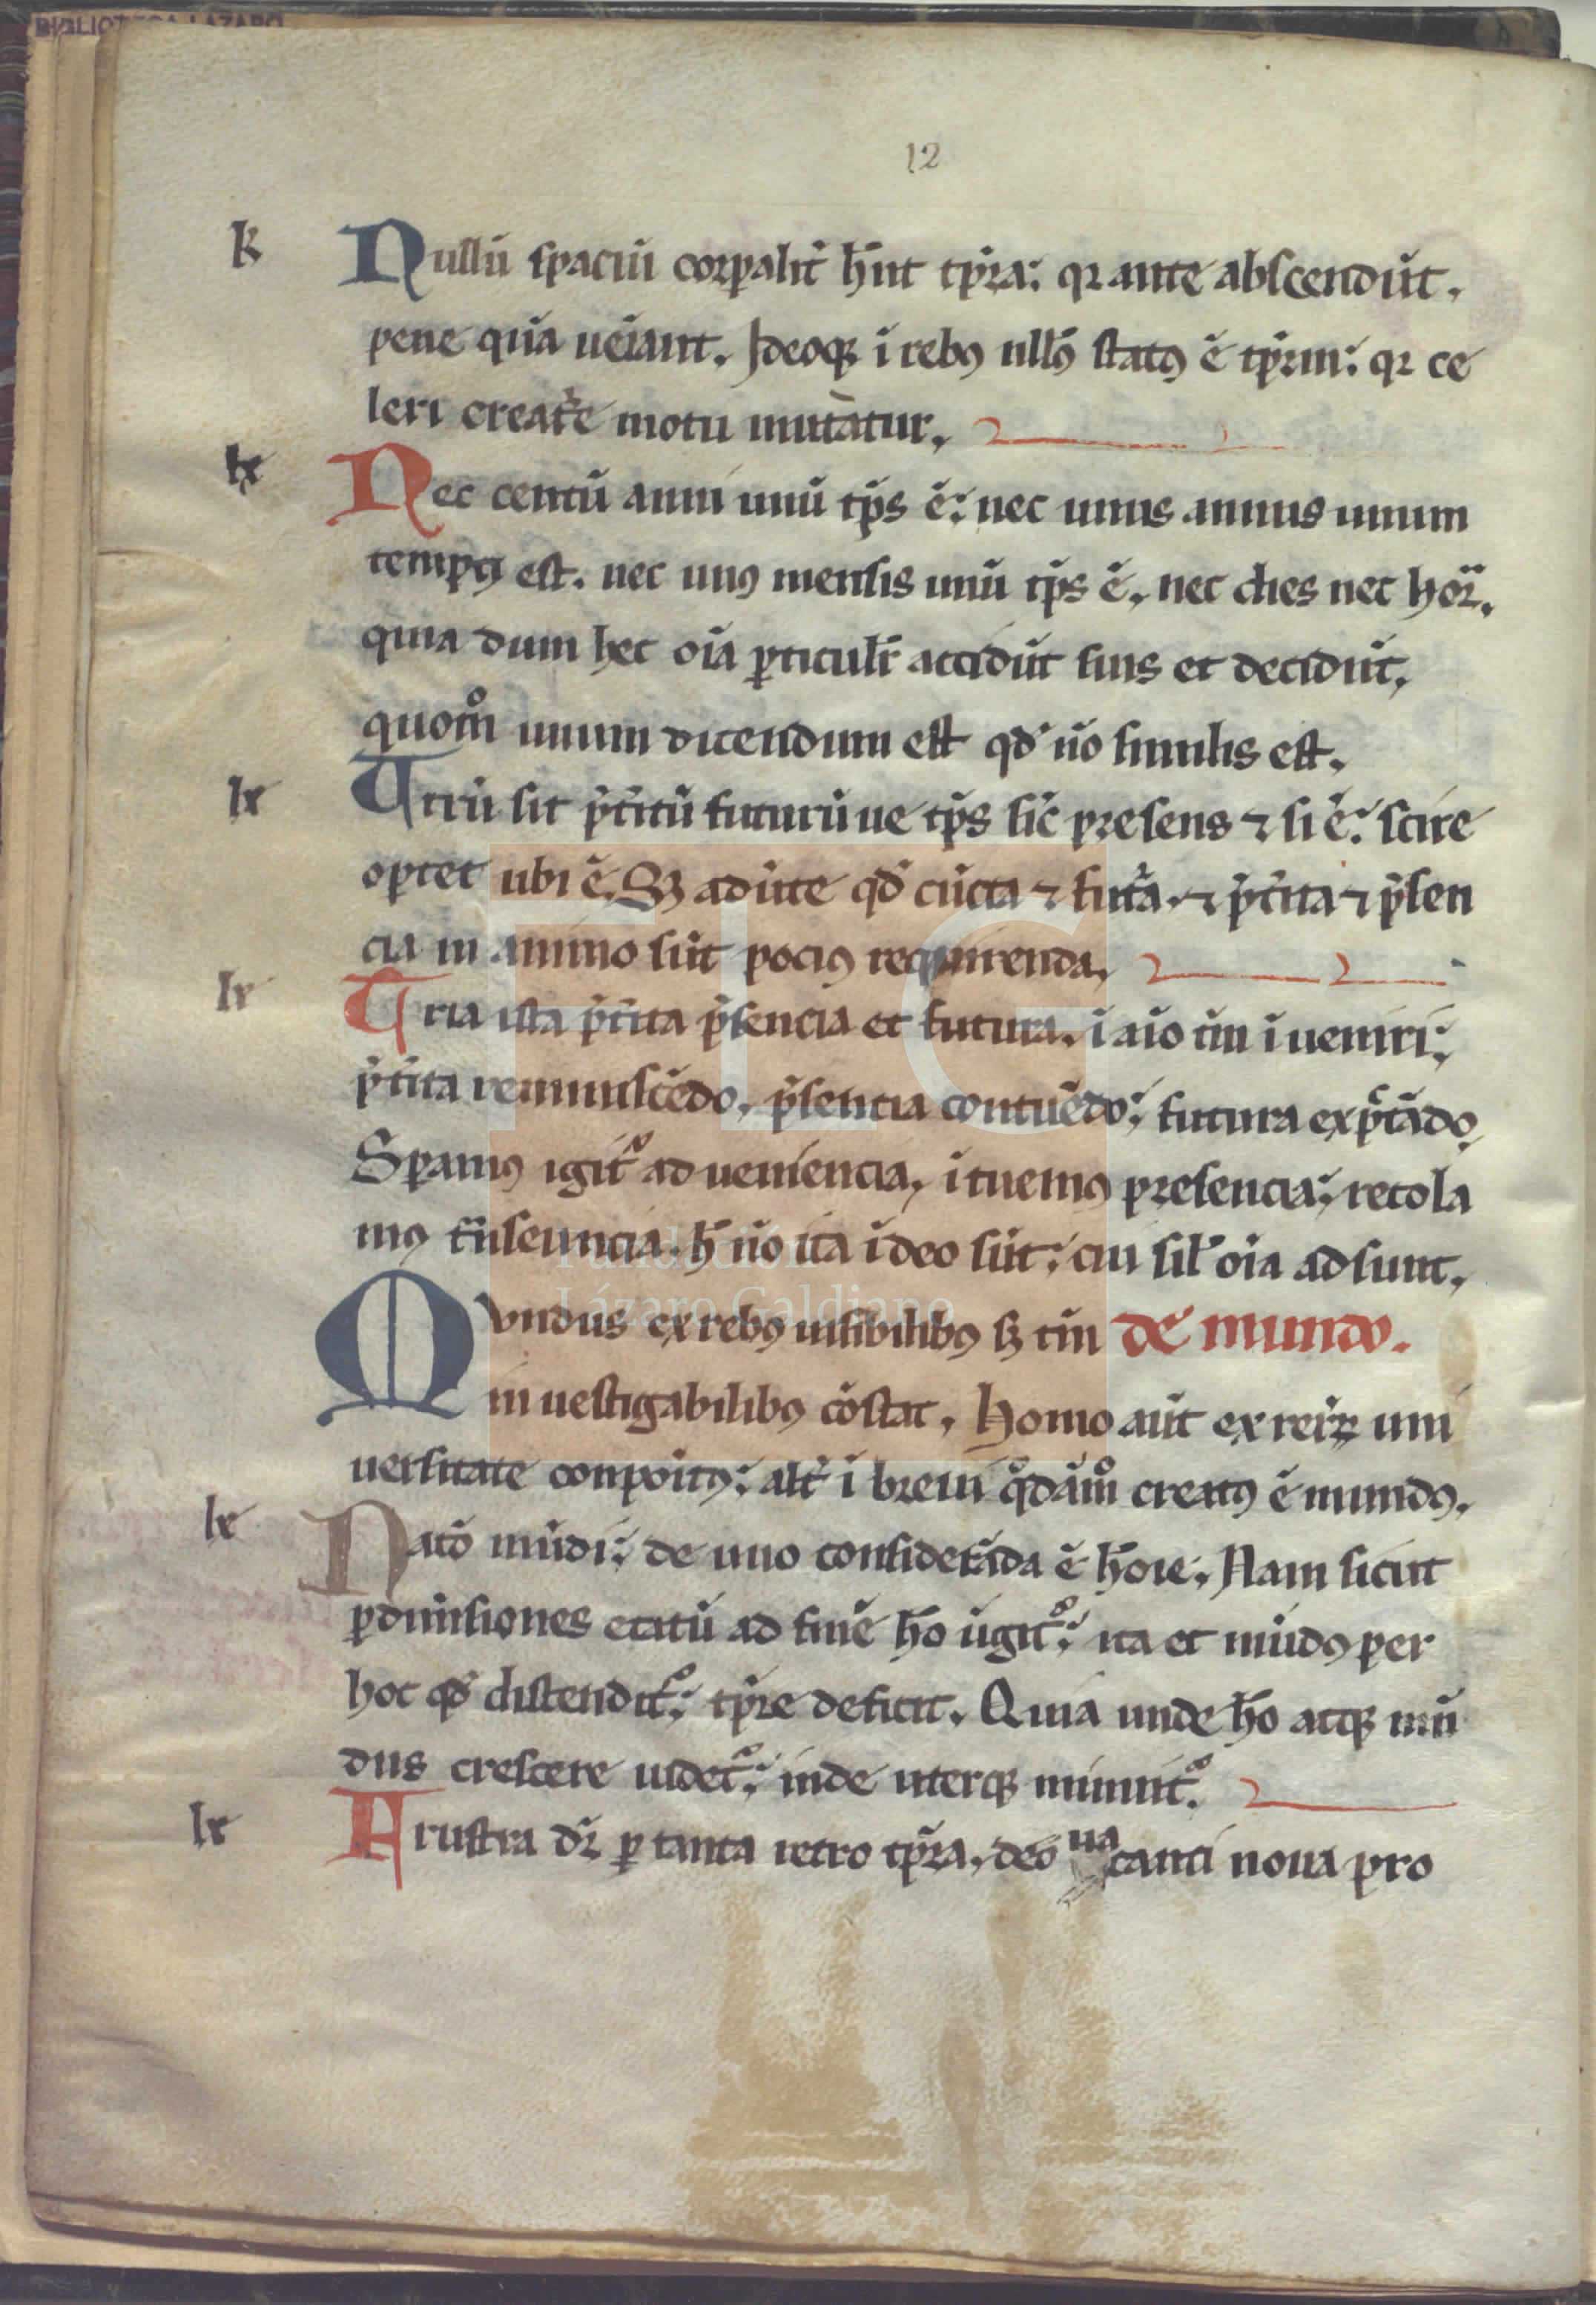 BIBLIOTECA LAZARO
12
Nullū spaciū corpalit̄ hn̄t tp̄ra: qr ante abscendūt.
pene quā ueīant. Ideoqꝫ ī rebꝯ nllꝰ statꝯ ē tp̄rm: qr ce
leri creat̄e motu mutātur.
lx
Nec centū anni unū tp̄s ē: nec unus annus unum
tempꝯ est. nec unꝯ mensis unū tp̄s ē, nec dies nec hor̄.
quia dum hec oīa ꝑticulr̄ accidūt suis et decidūt,
quom̊ unum dicendum est qd̄ ūo similis est.
lx
Utrū sit p̄t̄itū futurū ue tp̄s sic̄ presens ⁊ si ē: scire
oꝑtet ubi ē. Sꝫ adūte qd̄ cūcta ⁊ fut̄a. ⁊ p̄t̄ita ⁊ p̄sen
cia in animo sūt pociꝯ requirenda,
lx
Tria ista p̄t̄ita p̄sencia et futura. ī aīo tm̄ īueniri:
p̄t̄ita reminiscēdo, p̄sencia contuēdo: futura exp̄tādo,
Sꝑamꝯ igit̊ adueniencia, ītuemꝯ presencia: recola
mꝯ t̄nseuncia. h̄ ūo ita ī deo sūt: cui sil̄ oīa adsunt.
Mundus ex rebꝯ uisibilibꝯ sꝫ tm̄ de mundo.
inuestigabilibꝯ cōstat, homo aūt ex reiꝝ uni
uersitate conpoitꝯ: alt̄ ī breui q̊dām̊ creatꝯ ē mundꝯ.
lx
Racō mūdi: de uno considerāda ē hōie. Nam sicut
ꝑ dimisiones etatū ad finē hō ūgit̊: ita et mūdꝯ per
hoc qd̄ distendit̊: tp̄re deficit. Quia unde hō atqꝫ mū
dus crescere uidet̊: inde uterqꝫ minuit̊.
lx
Frustra dr̄ ꝑ tanta retro tp̄ra, deo uacanti noua pro
FLG
Fundación
Lázaro Galdiano